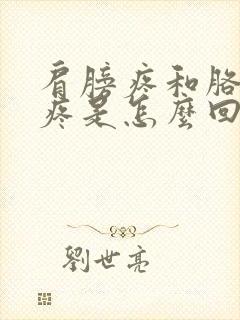 肩膀疼和胳
疼是怎麼回
劉世亮